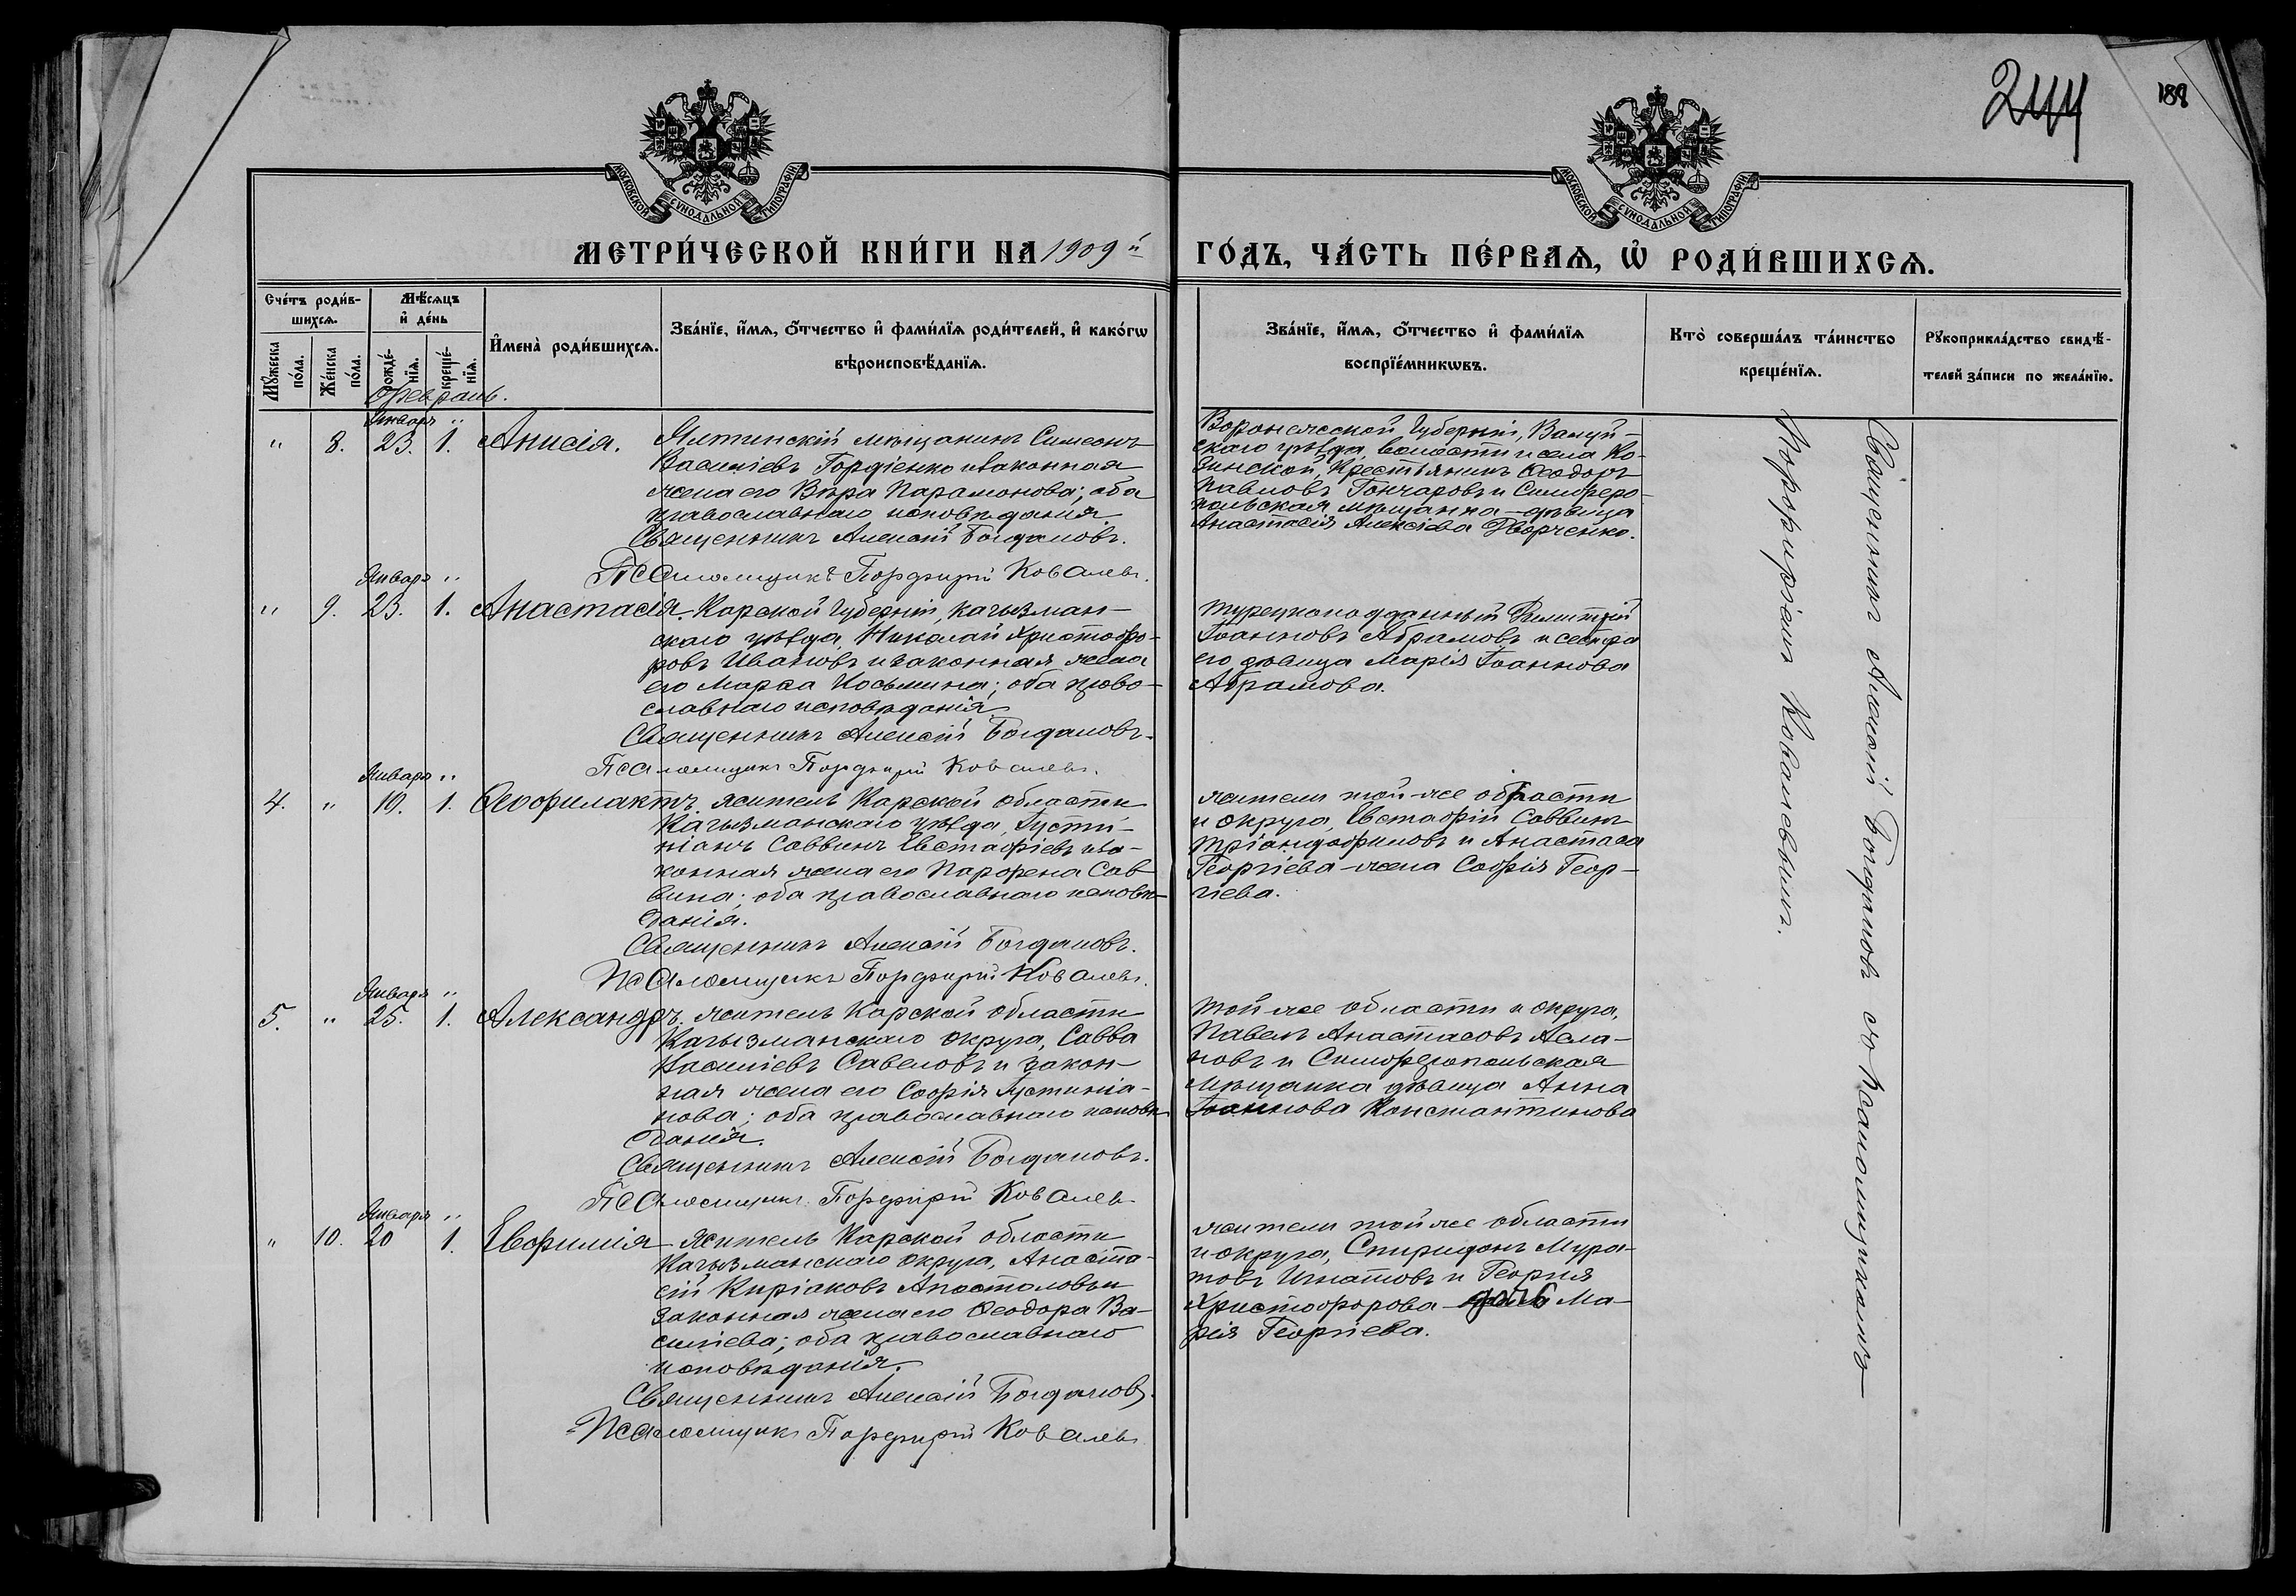 244
188
МОСКОВСКОЙ СѴНОДАЛЬНОЙ ТИПОГРАФІИ
МОСКОВСКОЙ СѴНОДАЛЬНОЙ ТИПОГРАФІИ
МЕТРИ́ЧЕСКОЙ КНИ́ГИ НА 1909й ГО́ДЪ, ЧА́СТЬ ПЕ́РВАѦ, Ѡ҆ РОДИ́ВШИХСѦ.
Сче́тъ роди́в-
шихсѧ.
Мѣ́сѧцъ
и҆ де́нь
Мꙋ́жеска
по́ла.
Же́нска
по́ла.
рожде́-
нїѧ.
креще́-
нїѧ.
И҆мена̀ роди́вшихсѧ.
Зва́нїе, и҆́мѧ, ѻ҆́тчество и҆ фами́лїѧ роди́телей, и҆ како́гѡ
вѣроисповѣ́данїѧ.
Зва́нїе, и҆́мѧ, ѻ҆́тчество и҆ фами́лїѧ
воспрїе́мникѡвъ.
Кто̀ соверша́лъ та́инство
креще́нїѧ.
Рꙋкоприкла́дство свидѣ́-
телей за́писи по жела́нїю.
Февраль.
Января "
" 8. 23. 1. Анисія.
Ялтинскій мѣщанинъ Симеонъ
Василіевъ Гордіенко и законная
жена его Вѣра Парамонова; оба
православнаго исповѣданія.
Священникъ Алексій Богдановъ.
Псаломщикъ Порфирій Ковалевъ.
Воронежской Губерніи, Валуй-
скаго уѣзда, волости и села Ко-
зинской, Крестьянинъ Ѳеодоръ
Павловъ Гончаровъ и Симферо-
польская мѣщанка-дѣвица
Анастасія Алексіева Дворченко.
Января "
" 9. 23. 1. Анастасія.
Карской Губерніи, Кагызман-
скаго уѣзда, Николай Христофо-
ровъ Ивановъ и законная жена
его Марѳа Косьмина; оба право-
славнаго исповѣданія
Священникъ Алексій Богдановъ.
Псаломщикъ Порфирій Ковалевъ.
турецкоподданный Димитрій
Іоанновъ Абрамовъ и сестра
его дѣвица Марія Іоаннова
Абрамова.
Января "
4. " 10. 1. Ѳеофилактъ
житель Карской области
Кагызманскаго уѣзда, Густи-
ніанъ Саввинъ Евстафіевъ и за-
конная жена его Парфена Сав-
вина; оба православнаго исповѣ-
данія.
Священникъ Алексій Богдановъ.
Псаломщикъ Порфирій Ковалевъ.
жители той-же области
и округа, Евстафій Саввинъ
Тріандафиловъ и Анастаса
Георгіева-жена Софія Геор-
гіева.
Января "
5. " 25. 1. Александръ.
житель Карской области
Кагызманскаго округа, Савва
Василіевъ Савеловъ и закон-
ная жена его Софія Густиніа-
нова; оба православнаго исповѣ-
данія.
Священникъ Алексій Богдановъ.
Псаломщикъ Порфирій Ковалевъ
той же области и округа,
Павелъ Анастасовъ Асла-
новъ и Симферопольская
мѣщанка дѣвица Анна
Іоаннова Константинова
Января "
" 10. 20 1. Евфимія
Житель Карской области
Кагызманскаго округа, Анаста-
сій Киріаковъ Апостоловъ и
законная жена его Ѳеодора Ва-
силіева; оба православнаго
исповѣданія.
Священникъ Алексій Богдановъ.
Псаломщикъ Порфирій Ковалевъ
жители той же области
и округа, Спиридонъ Мура-
товъ Игнатовъ и Георгія
Христофорова - дочь Ма-
рія Георгіева.
Священникъ Алексій Богдановъ съ псаломщикомъ
Порфиріемъ Ковалевымъ.